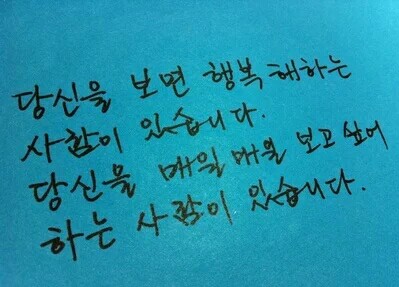 당신을 보면 행복해하는
사람이 있습니다.
당신을 매일매일 보고싶어
하는 사람이 있습니다.